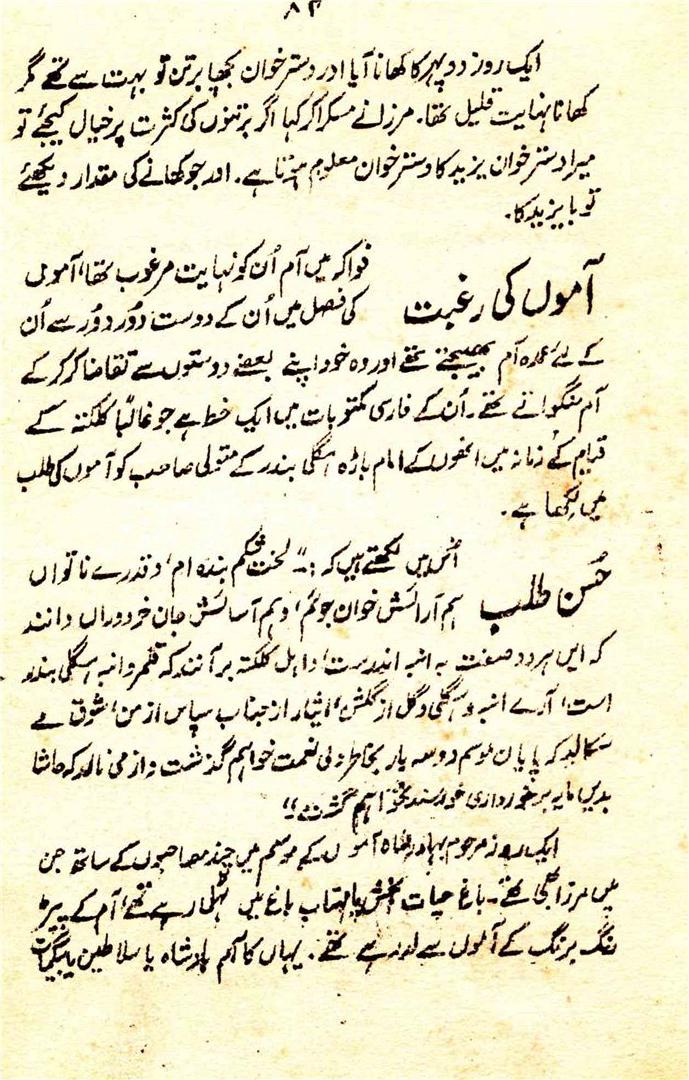 ۸۴
ایک روز دوپہر کا کھانا آیا اور دسترخوان بچھا برتن تو بہت سے تھے مگر
کھانا نہایت قلیل تھا۔ مرزا نے مسکرا کر کہا اگر برتنوں کی کثرت پر خیال کیجئے تو
میرا دسترخوان یزید کا دسترخوان معلوم ہوتا ہے۔ اور جو کھانے کی مقدار دیکھئے
تو بایزید کا۔
آموں کی رغبت
فواکہ میں آم اُن کو نہایت مرغوب تھا، آموں
کی فصل میں اُن کے دوست دُور دُور سے اُن
کے لئے عمدہ آم بھیجتے تھے اور وہ خود اپنے بعضے دوستوں سے تقاضا کر کر کے
آم منگواتے تھے۔ اُن کے فارسی مکتوبات میں ایک خط ہے جو غالباً کلکتہ کے
قیام کے زمانہ میں انھوں کے امام باڑہ ہگلی بندر کے متولی صاحب کو آموں کی طلب
میں لکھا ہے۔
حُسن طلب
اُس میں لکھتے ہیں کہ :۔ "لختے شکم بندہ ام، و قدرے ناتواں
ہم آرائش خوان جویم، و ہم آسائش جان خرد وراں دانند
کہ ایں ہر دو صفت بہ انبہ اندرست، و اہل کلکتہ بر آنند کہ قلمرو انبہ ہگلی بندر
است، آرے انبہ و ہگلی و گل از گلشن، ایثار از جناب سپاس از من، شوق مے
سگالد کہ پایان موسم دو سہ بار بخاطر ولی نعمت خواہم گذشت و آز می نالد کہ حاشا
بدیں مایہ برخورداری خورسند نخواہم گشت"
ایک روز مرحوم بہادر شاہ آموں کے موسم میں چند مصاحبوں کے ساتھ جن
میں مرزا بھی تھے۔ باغ حیات بخش یا مہتاب باغ میں ٹہل رہے تھے، آم کے پیڑ
رنگ برنگ کے آموں سے لد رہے تھے۔ یہاں کا آم بادشاہ یا سلاطین یا بیگمات